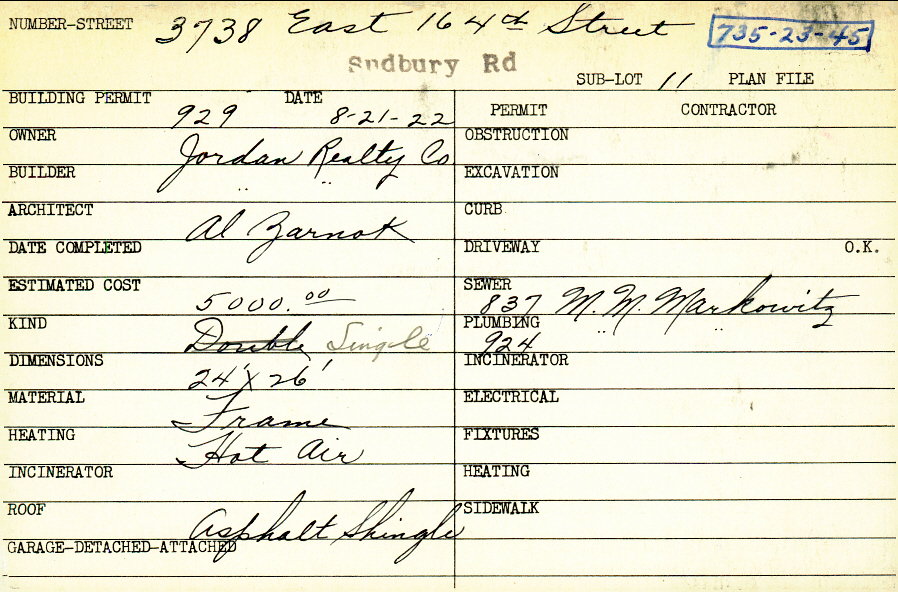 NUMBER-STREET 3738 East 164th Street 735-23-45
Sudbury Rd
SUB-LOT 11 PLAN FILE
BUILDING PERMIT 929 DATE 8-21-22
PERMIT CONTRACTOR
OWNER Jordan Realty Co
OBSTRUCTION
BUILDER " "
EXCAVATION
ARCHITECT Al Zarnok
CURB
DATE COMPLETED
DRIVEWAY O.K.
ESTIMATED COST 5000.00
SEWER 837 M. M. Markowitz
KIND Double Single
PLUMBING 924 " "
DIMENSIONS 24' X 26'
INCINERATOR
MATERIAL Frame
ELECTRICAL
HEATING Hot Air
FIXTURES
INCINERATOR
HEATING
ROOF Asphalt Shingle
SIDEWALK
GARAGE-DETACHED-ATTACHED